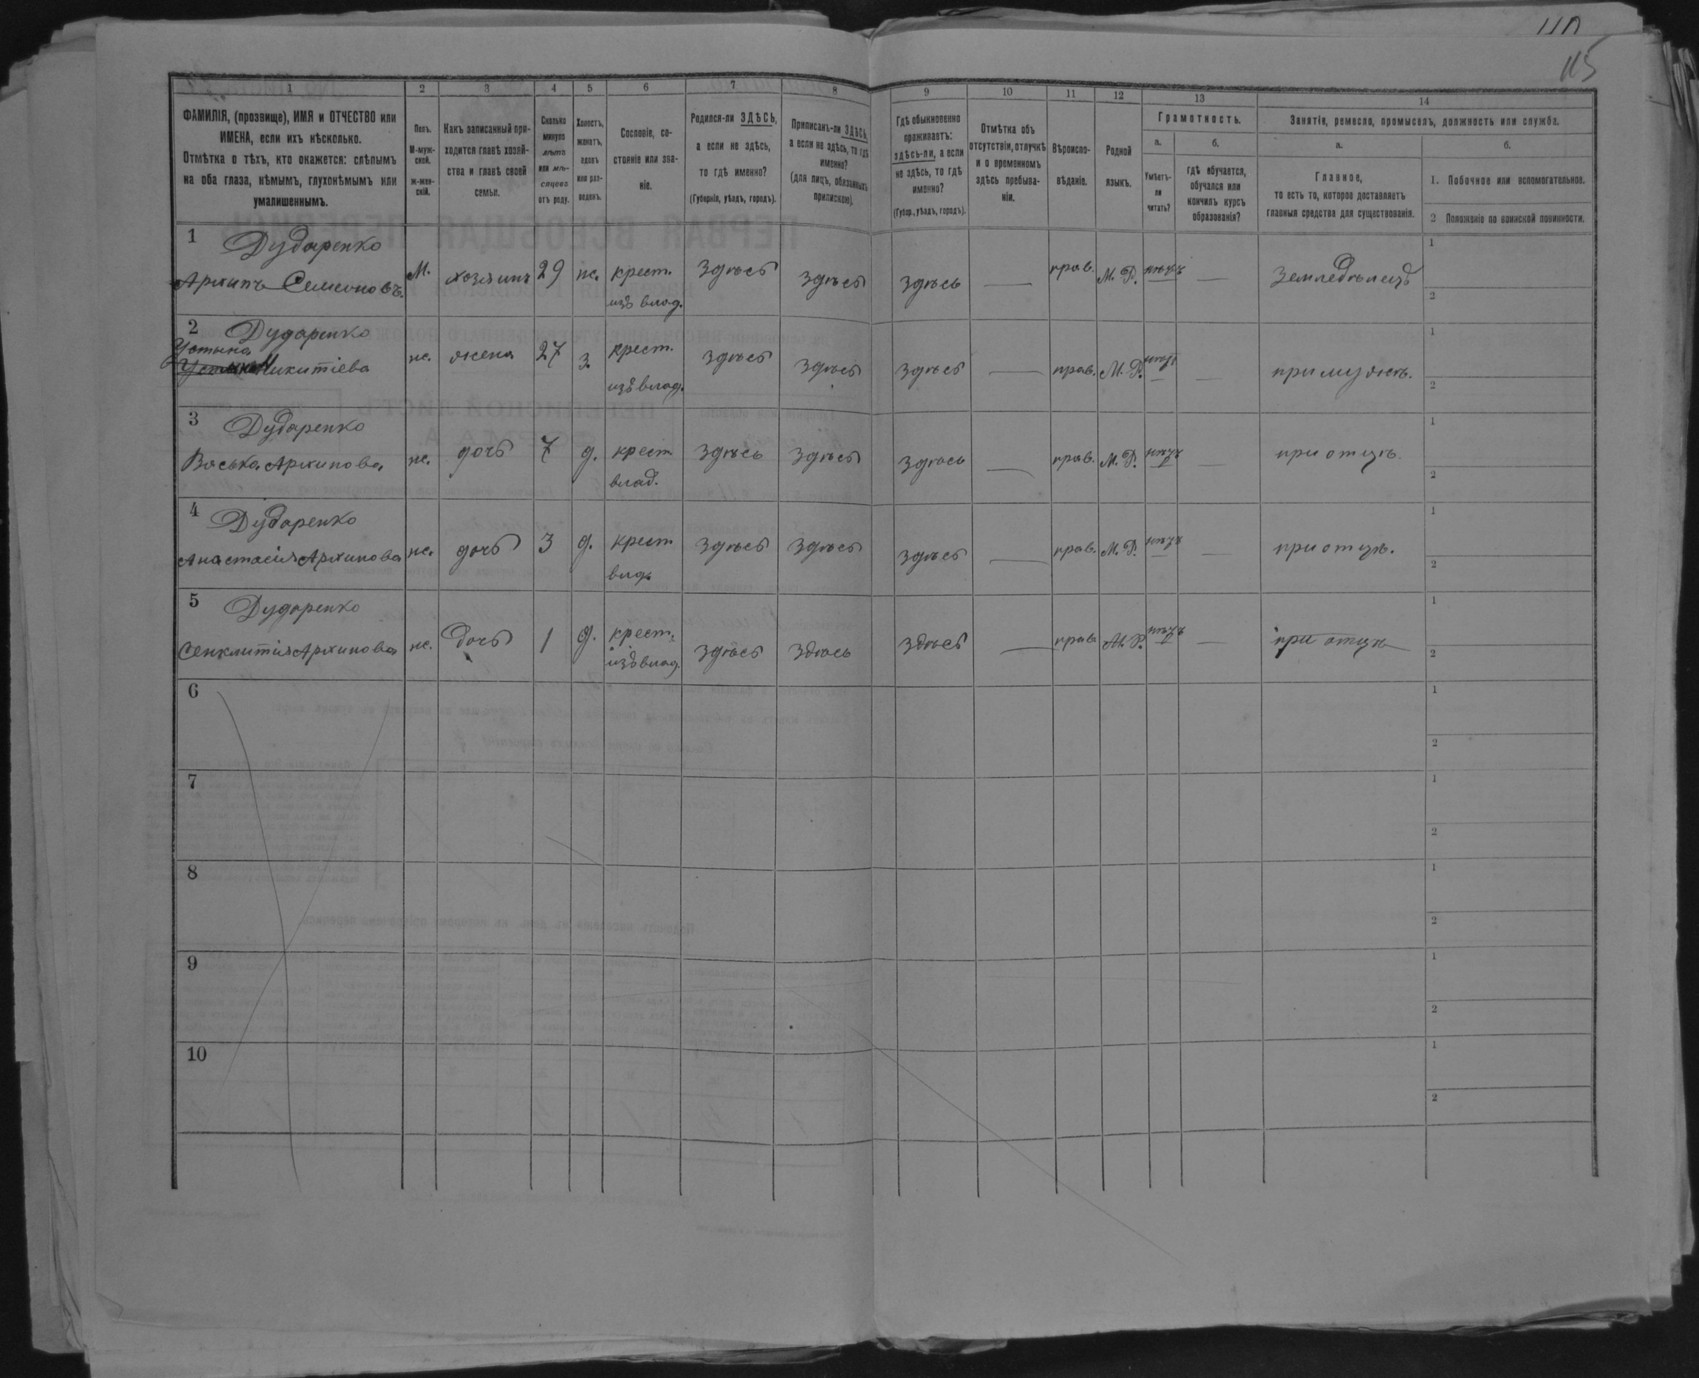 115
1 2 3 4 5 6 7 8 9 10 11 12 13 14
ФАМИЛІЯ, (прозвище), ИМЯ и ОТЧЕСТВО или
ИМЕНА, если ихъ нѣсколько.
Отмѣтка о тѣхъ, кто окажется: слѣпымъ
на оба глаза, нѣмымъ, глухонѣмымъ или
умалишеннымъ.
Полъ.
М-муж-
ской.
ж-жен-
скій.
Какъ записанный при-
ходится главѣ хозяй-
ства и главѣ своей
семьи.
Сколько
минуло
лѣтъ
или мѣ-
сяцевъ
отъ роду.
Холостъ,
женатъ,
вдовъ
или раз-
веденъ.
Сословіе, со-
стояніе или зва-
ніе.
Родился-ли ЗДѢСЬ,
а если не здѣсь,
то гдѣ именно?
(Губернія, уѣздъ, городъ).
Приписанъ-ли ЗДѢСЬ,
а если не здѣсь, то гдѣ
именно?
(для лицъ, обязанныхъ
припискою).
Гдѣ обыкновенно
проживаетъ:
здѣсь-ли, а если
не здѣсь, то гдѣ
именно?
(Губер., уѣздъ, городъ).
Отмѣтка объ
отсутствіи, отлучкѣ
и о временномъ
здѣсь пребыва-
ніи.
Вѣроиспо-
вѣданіе.
Родной
языкъ.
Грамотность.
а.
Умѣетъ-
ли
читать?
б.
гдѣ обучается,
обучался или
кончилъ курсъ
образованія?
Занятіе, ремесло, промыселъ, должность или служба.
а.
Главное,
то есть то, которое доставляетъ
главныя средства для существованія.
б.
1. Побочное или вспомогательное.
2 Положеніе по воинской повинности.
1 Дударенко
Архипъ Семеновъ. М. хозяинъ 29 ж. крест. здѣсь здѣсь здѣсь — прав. М. Р. нѣтъ — земледѣлецъ
изъ влад.
1
2
2 Дударенко
Устина
Никитіева ж. жена 27 з. крест. здѣсь здѣсь здѣсь — прав. М. Р. — при мужѣ.
изъ влад.
1
2
3 Дударенко
Васька Архипова ж. дочь 7 д. крест здѣсь здѣсь здѣсь — прав. М. Р. — при отцѣ.
влад.
1
2
4 Дударенко
Анастасія Архипова ж. дочь 3 д. крест здѣсь здѣсь здѣсь — прав. М. Р. — при отцѣ.
влад.
1
2
5 Дударенко
Сенклитія Архипова ж. дочь 1 д. крест. здѣсь здѣсь здѣсь — прав М. Р. — при отцѣ
изъ влад.
1
2
6
1
2
7
1
2
8
1
2
9
1
2
10
1
2